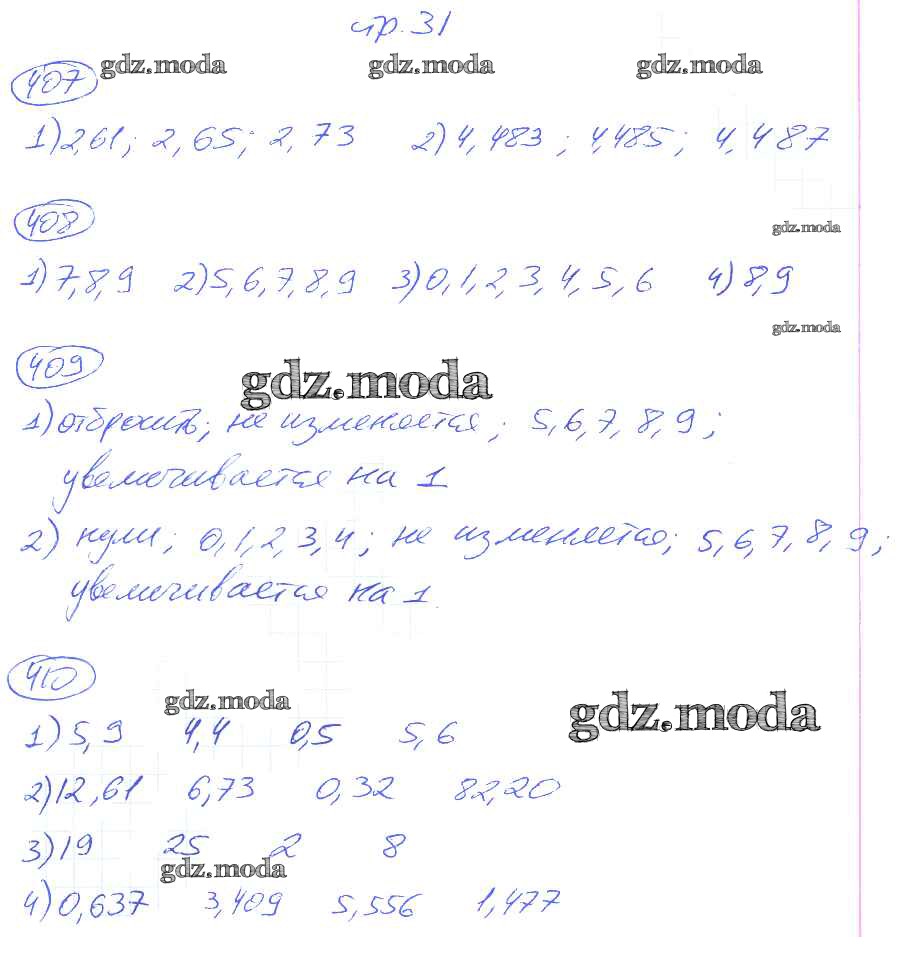 стр. 31
gdz.moda gdz.moda gdz.moda
407
1) 2,61; 2,65; 2,73 2) 4,483; 4,485; 4,487
408
gdz.moda
1) 7,8,9 2) 5,6,7,8,9 3) 0,1,2,3,4,5,6 4) 8,9
gdz.moda
409
gdz.moda
1) отбросить; не изменяется; 5,6,7,8,9;
увеличивается на 1
2) нули; 0,1,2,3,4; не изменяется; 5,6,7,8,9;
увеличивается на 1.
410
gdz.moda gdz.moda
1) 5,9 4,4 0,5 5,6
2) 12,61 6,73 0,32 82,20
3) 19 25 2 8
gdz.moda
4) 0,637 3,409 5,556 1,477